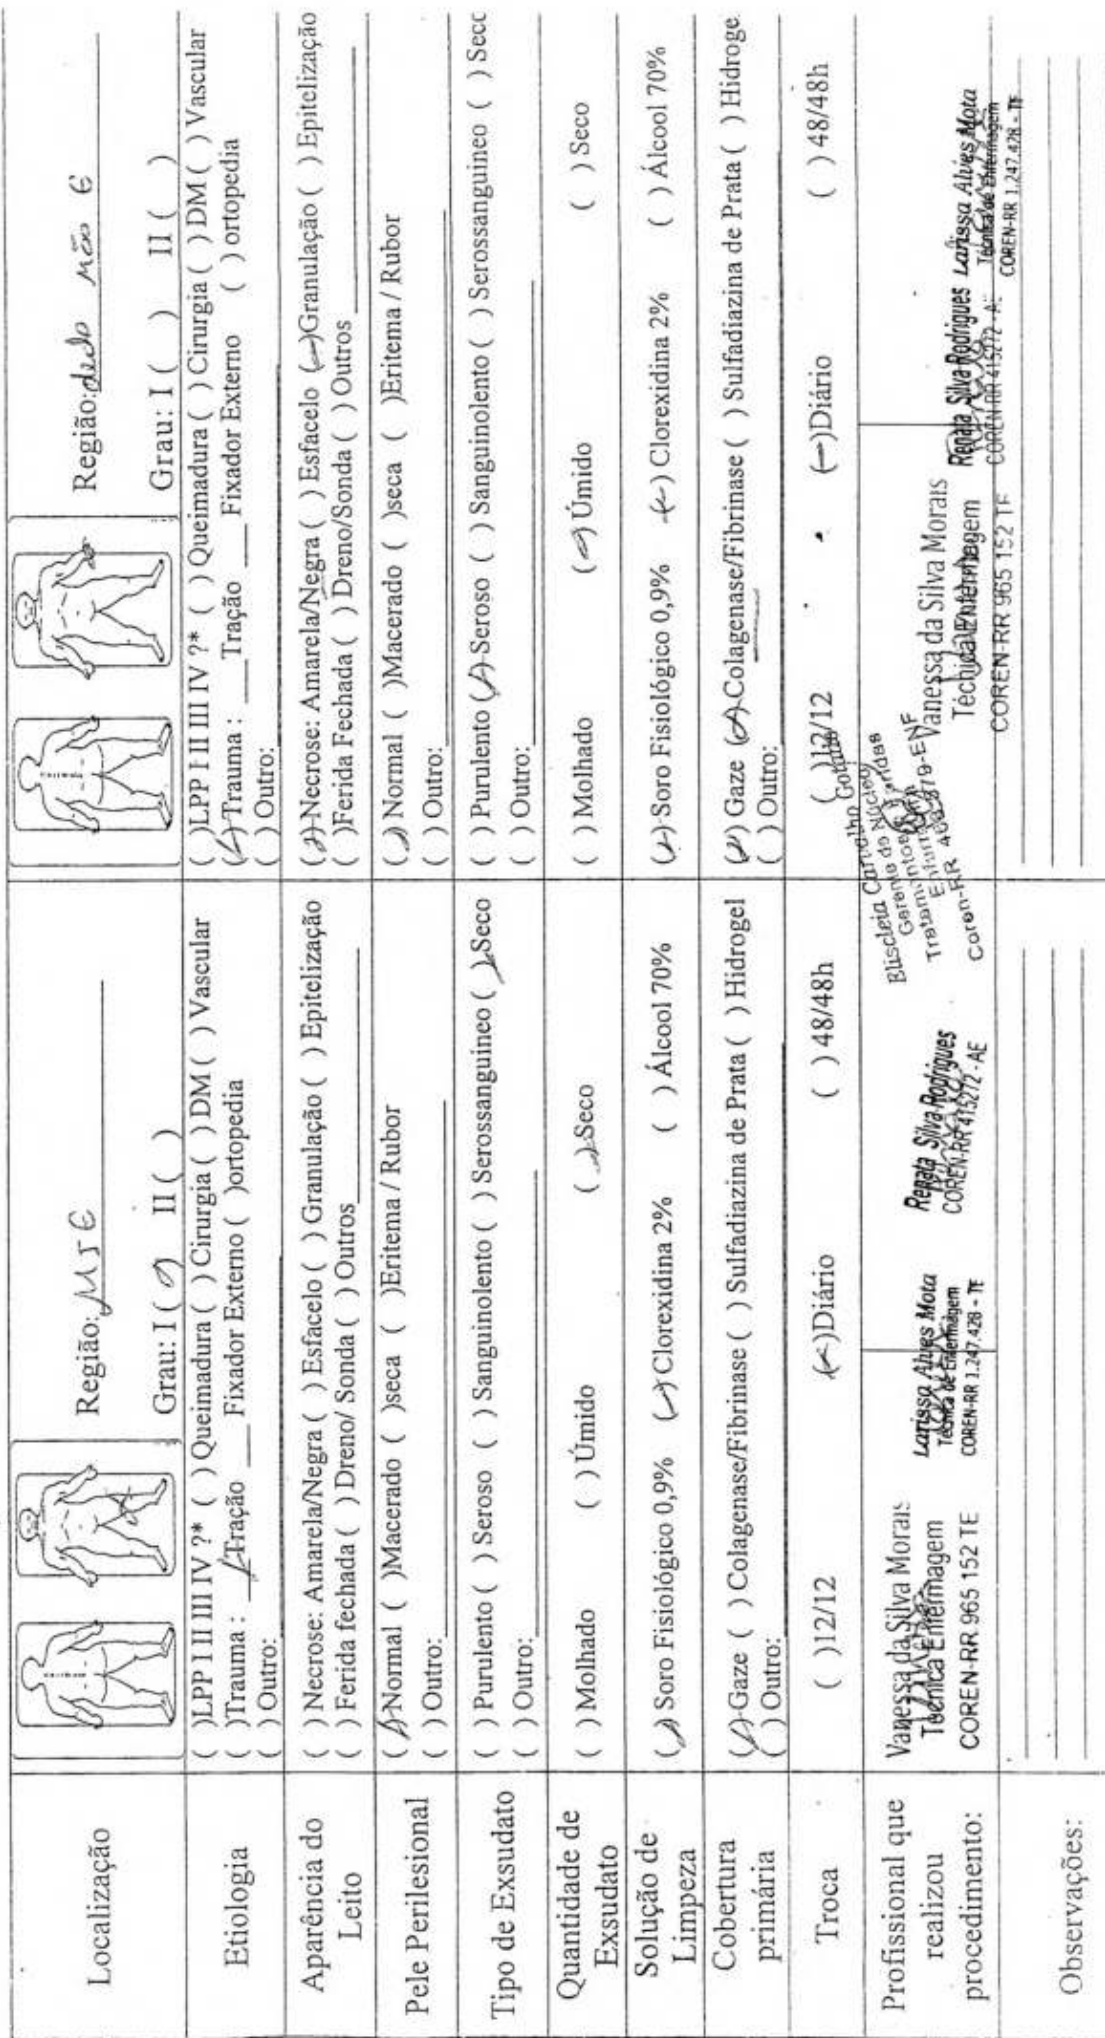 Localização
Região: MSE
Grau: I ( ) II ( )
Região: dedo mão E
Grau: I ( ) II ( )
Etiologia
( )LPP I II III IV ?* ( ) Queimadura ( ) Cirurgia ( ) DM ( ) Vascular
( )Trauma : ___Tração ___ Fixador Externo ( )ortopedia
( ) Outro:
( )LPP I II III IV ?* ( ) Queimadura ( ) Cirurgia ( ) DM ( ) Vascular
( )Trauma : ___Tração ___ Fixador Externo ( ) ortopedia
( ) Outro:
Aparência do
Leito
( ) Necrose: Amarela/Negra ( ) Esfacelo ( ) Granulação ( ) Epitelização
( ) Ferida fechada ( ) Dreno/ Sonda ( ) Outros
( )Necrose: Amarela/Negra ( ) Esfacelo ( )Granulação ( ) Epitelização
( )Ferida Fechada ( ) Dreno/Sonda ( ) Outros
Pele Perilesional
( )Normal ( )Macerado ( )seca ( )Eritema / Rubor
( ) Outro:
( ) Normal ( )Macerado ( )seca ( )Eritema / Rubor
( ) Outro:
Tipo de Exsudato
( ) Purulento ( ) Seroso ( ) Sanguinolento ( ) Serossanguineo ( )Seco
( ) Outro:
( ) Purulento ( )Seroso ( ) Sanguinolento ( ) Serossanguineo ( ) Secc
( ) Outro:
Quantidade de
Exsudato
( ) Molhado ( ) Úmido ( )Seco
( ) Molhado ( )Úmido ( ) Seco
Solução de
Limpeza
( ) Soro Fisiológico 0,9% ( )Clorexidina 2% ( ) Álcool 70%
( )Soro Fisiológico 0,9% ( ) Clorexidina 2% ( ) Álcool 70%
Cobertura
primária
( )Gaze ( ) Colagenase/Fibrinase ( ) Sulfadiazina de Prata ( ) Hidrogel
( ) Outro:
( ) Gaze ( )Colagenase/Fibrinase ( ) Sulfadiazina de Prata ( ) Hidroge
( ) Outro:
Troca
( )12/12 ( )Diário ( ) 48/48h
( )12/12 ( )Diário ( ) 48/48h
Profissional que
realizou
procedimento:
Vanessa da Silva Morais
Técnica Enfermagem
COREN-RR 965 152 TE
Larissa Alves Mota
Técnica de Enfermagem
COREN-RR 1.247.428 - TE
Renata Silva Rodrigues
COREN-RR 415272 - AE
Gerente do Núcleo
Coren-RR
Vanessa da Silva Morais
Técnica Enfermagem
COREN-RR 965 152 TE
Renata Silva Rodrigues
COREN-RR 415272 - AE
Larissa Alves Mota
Técnica de Enfermagem
COREN-RR 1.247.428 - TE
Observações: